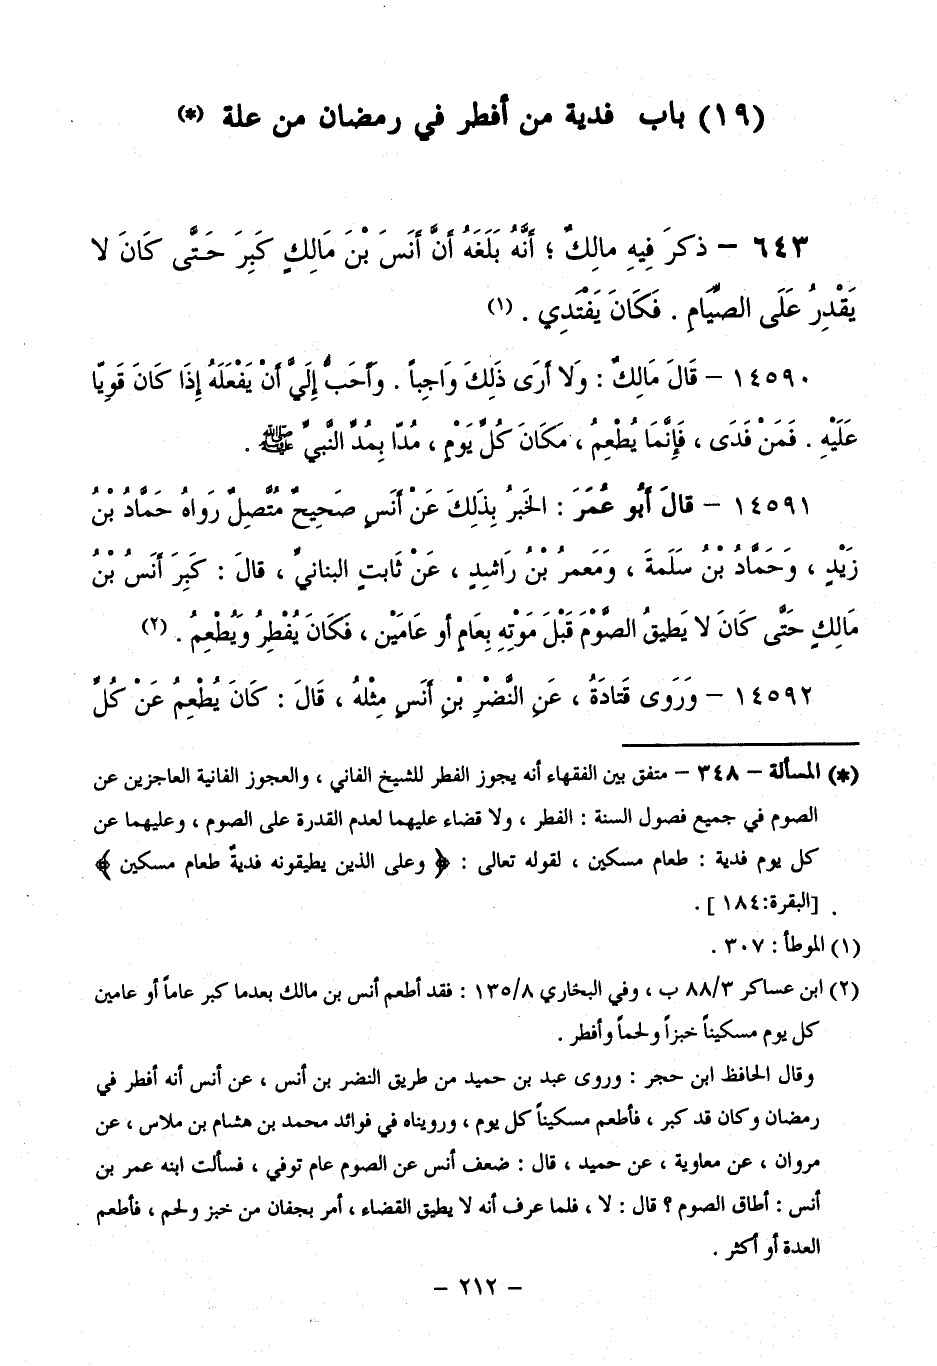 (١٩) باب فدية من أفطر في رمضان من علة (*)
٦٤٣ – ذكرَ فِيهِ مالِكٌ ؛ أَنَّهُ بَلَغَهُ أَنَّ أَنَسَ بْنَ مَالِكٍ كَبِرَ حَتَّى كَانَ لا
يَقْدِرُ عَلَى الصِّيَامِ . فَكَانَ يَفْتَدِي . (١)
١٤٥٩٠ – قَالَ مَالِكٌ : وَلا أَرَى ذَلِكَ وَاجِباً . وَأَحَبُّ إِلَيَّ أَنْ يَفْعَلَهُ إِذَا كَانَ قَوِيّا
عَلَيْهِ . فَمَنْ فَدَى ، فَإِنَّمَا يُطْعِمُ ، مَكَانَ كُلِّ يَوْمٍ ، مُدّا بِمُدِّ النَّبِيِّ ﷺ .
١٤٥٩١ – قالَ أَبُو عُمَرَ : الخَبرُ بِذَلِكَ عَنْ أَنَسٍ صَحِيحٌ مُتَّصِلٌ رَواهُ حَمَّادُ بْنُ
زَيْدٍ ، وَحَمَّادُ بْنُ سَلَمَةَ ، وَمَعمرُ بْنُ رَاشِدٍ ، عَنْ ثَابتٍ البنانيِّ ، قالَ : كَبِرَ أَنَسُ بْنُ
مَالِكٍ حَتَّى كَانَ لا يَطيقُ الصَّوْمَ قَبْلَ مَوْتِهِ بِعَامٍ أو عَامَيْنِ ، فَكَانَ يُفْطِرُ وَيُطْعِمُ . (٢)
١٤٥٩٢ – وَرَوى قَتادَةُ ، عَنِ النَّضْرِ بْنِ أَنَسٍ مِثْلهُ ، قَالَ : كَانَ يُطْعِمُ عَنْ كُلِّ
(*) المسألة – ٣٤٨ – متفق بين الفقهاء أنه يجوز الفطر للشيخ الفاني ، والعجوز الفانية العاجزين عن
الصوم في جميع فصول السنة : الفطر ، ولا قضاء عليهما لعدم القدرة على الصوم ، وعليهما عن
كل يوم فدية : طعام مسكين ، لقوله تعالى : ﴿ وعلى الذين يطيقونه فديةٌ طعام مسكين ﴾
[البقرة:١٨٤ ] .
(١) الموطأ : ٣٠٧ .
(٢) ابن عساكر ٨٨/٣ ب ، وفي البخاري ١٣٥/٨ : فقد أطعم أنس بن مالك بعدما كبر عاماً أو عامين
كل يوم مسكيناً خبزاً ولحماً وأفطر .
وقال الحافظ ابن حجر : وروى عبد بن حميد من طريق النضر بن أنس ، عن أنس أنه أفطر في
رمضان وكان قد كبر ، فأطعم مسكيناً كل يوم ، ورويناه في فوائد محمد بن هشام بن ملاس ، عن
مروان ، عن معاوية ، عن حميد ، قال : ضعف أنس عن الصوم عام توفي ، فسألت ابنه عمر بن
أنس : أطاق الصوم ؟ قال : لا ، فلما عرف أنه لا يطيق القضاء ، أمر بجفان من خبز ولحم ، فأطعم
العدة أو أكثر .
– ٢١٢ –